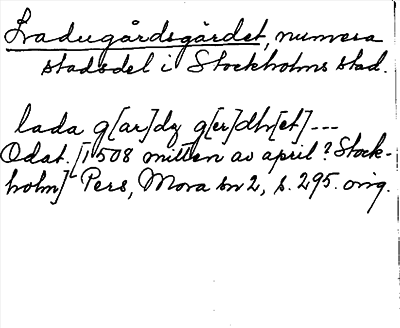 Ladugårdsgärdet, numera
stadsdel i Stockholms stad.
lada g[ar]dz g[er]dh[et] ---
Odat. [1508 mitten av april? Stock-
holm] Pers, Mora bn 2, s. 295. orig.